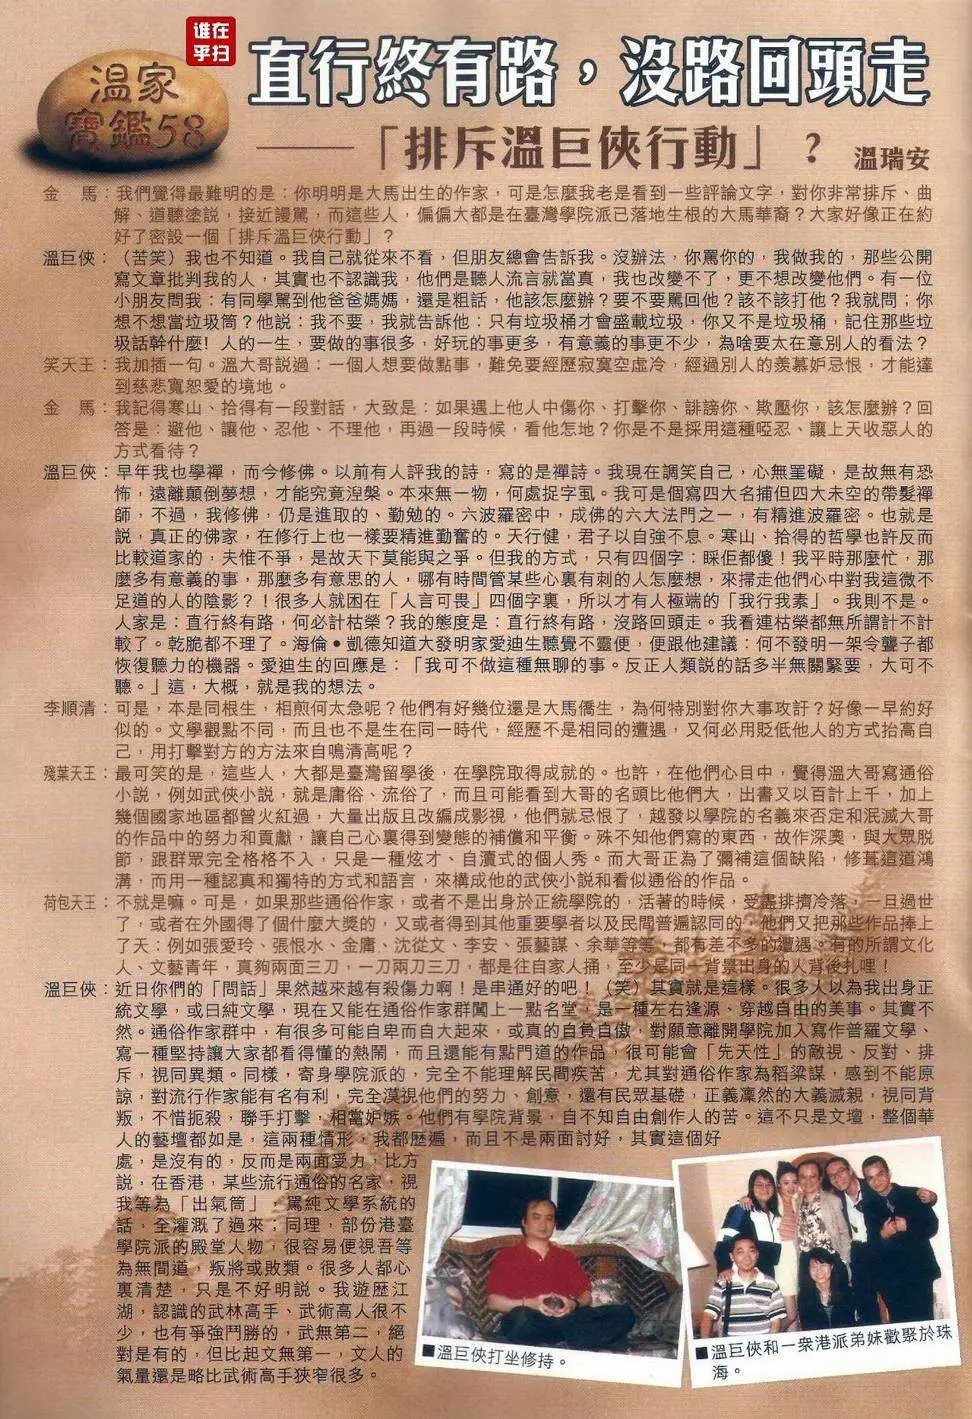 谁在
乎扫
溫家
寶鑑58
直行終有路，沒路回頭走
——「排斥溫巨俠行動」？ 溫瑞安
金　馬：我們覺得最難明的是：你明明是大馬出生的作家，可是怎麼我老是看到一些評論文字，對你非常排斥、曲
解、道聽塗說，接近謾罵，而這些人，偏偏大都是在臺灣學院派已落地生根的大馬華裔？大家好像正在約
好了密設一個「排斥溫巨俠行動」？
溫巨俠：（苦笑）我也不知道。我自己就從來不看，但朋友總會告訴我。沒辦法，你罵你的，我做我的，那些公開
寫文章批判我的人，其實也不認識我，他們是聽人流言就當真，我也改變不了，更不想改變他們。有一位
小朋友問我：有同學罵到他爸爸媽媽，還是粗話，他該怎麼辦？要不要罵回他？該不該打他？我就問；你
想不想當垃圾筒？他說：我不要，我就告訴他：只有垃圾桶才會盛載垃圾，你又不是垃圾桶，記住那些垃
圾話幹什麼！人的一生，要做的事很多，好玩的事更多，有意義的事更不少，為啥要太在意別人的看法？
笑天王：我加插一句。溫大哥說過：一個人想要做點事，難免要經歷寂寞空虛冷，經過別人的羨慕妒忌恨，才能達
到慈悲寬恕愛的境地。
金　馬：我記得寒山、拾得有一段對話，大致是：如果遇上他人中傷你、打擊你、誹謗你、欺壓你，該怎麼辦？回
答是：避他、讓他、忍他、不理他，再過一段時候，看他怎地？你是不是採用這種啞忍、讓上天收惡人的
方式看待？
溫巨俠：早年我也學禪，而今修佛。以前有人評我的詩，寫的是禪詩。我現在調笑自己，心無罣礙，是故無有恐
怖，遠離顛倒夢想，才能究竟涅槃。本來無一物，何處捉字虱。我可是個寫四大名捕但四大未空的帶髮禪
師，不過，我修佛，仍是進取的、勤勉的。六波羅密中，成佛的六大法門之一，有精進波羅密。也就是
說，真正的佛家，在修行上也一樣要精進勤奮的。天行健，君子以自強不息。寒山、拾得的哲學也許反而
比較道家的，夫惟不爭，是故天下莫能與之爭。但我的方式，只有四個字：睬佢都傻！我平時那麼忙，那
麼多有意義的事，那麼多有意思的人，哪有時間管某些心裏有刺的人怎麼想，來掃走他們心中對我這微不
足道的人的陰影？！很多人就困在「人言可畏」四個字裏，所以才有人極端的「我行我素」。我則不是。
人家是：直行終有路，何必計枯榮？我的態度是：直行終有路，沒路回頭走。我看連枯榮都無所謂計不計
較了。乾脆都不理了。海倫•凱德知道大發明家愛迪生聽覺不靈便，便跟他建議：何不發明一架令聾子都
恢復聽力的機器。愛迪生的回應是：「我可不做這種無聊的事。反正人類說的話多半無關緊要，大可不
聽。」這，大概，就是我的想法。
李順清：可是，本是同根生，相煎何太急呢？他們有好幾位還是大馬僑生，為何特別對你大事攻訐？好像一早約好
似的。文學觀點不同，而且也不是生在同一時代，經歷不是相同的遭遇，又何必用貶低他人的方式抬高自
己，用打擊對方的方法來自鳴清高呢？
殘葉天王：最可笑的是，這些人，大都是臺灣留學後，在學院取得成就的。也許，在他們心目中，覺得溫大哥寫通俗
小說，例如武俠小說，就是庸俗、流俗了，而且可能看到大哥的名頭比他們大，出書又以百計上千，加上
幾個國家地區都曾火紅過，大量出版且改編成影視，他們就忌恨了，越發以學院的名義來否定和泯滅大哥
的作品中的努力和貢獻，讓自己心裏得到變態的補償和平衡。殊不知他們寫的東西，故作深奧，與大眾脫
節，跟群眾完全格格不入，只是一種炫才、自瀆式的個人秀。而大哥正為了彌補這個缺陷，修葺這道鴻
溝，而用一種認真和獨特的方式和語言，來構成他的武俠小說和看似通俗的作品。
荷包天王：不就是嘛。可是，如果那些通俗作家，或者不是出身於正統學院的，活著的時候，受盡排擠冷落，一旦過世
了，或者在外國得了個什麼大獎的，又或者得到其他重要學者以及民間普遍認同的，他們又把那些作品捧上
了天：例如張愛玲、張恨水、金庸、沈從文、李安、張藝謀、余華等等，都有差不多的遭遇。有的所謂文化
人、文藝青年，真夠兩面三刀，一刀兩刀三刀，都是往自家人捅，至少是同一背景出身的人背後扎哩！
溫巨俠：近日你們的「問話」果然越來越有殺傷力啊！是串通好的吧！（笑）其實就是這樣。很多人以為我出身正
統文學，或曰純文學，現在又能在通俗作家群闖上一點名堂，是一種左右逢源、穿越自由的美事。其實不
然。通俗作家群中，有很多可能自卑而自大起來，或真的自負自傲，對願意離開學院加入寫作普羅文學、
寫一種堅持讓大家都看得懂的熱鬧，而且還能有點門道的作品，很可能會「先天性」的敵視、反對、排
斥，視同異類。同樣，寄身學院派的，完全不能理解民間疾苦，尤其對通俗作家為稻粱謀，感到不能原
諒，對流行作家能有名有利，完全漠視他們的努力、創意，還有民眾基礎，正義凜然的大義滅親，視同背
叛，不惜扼殺，聯手打擊，相當妒嫉。他們有學院背景，自不知自由創作人的苦。這不只是文壇，整個華
人的藝壇都如是，這兩種情形，我都歷遍，而且不是兩面討好，其實這個好
處，是沒有的，反而是兩面受力。比方
說，在香港，某些流行通俗的名家，視
我等為「出氣筒」，罵純文學系統的
話，全灌溉了過來；同理，部份港臺
學院派的殿堂人物，很容易便視吾等
為無間道，叛將或敗類。很多人都心
裏清楚，只是不好明說。我遊歷江
湖，認識的武林高手、武術高人很不
少，也有爭強鬥勝的，武無第二，絕
對是有的，但比起文無第一，文人的
氣量還是略比武術高手狹窄很多。
■溫巨俠打坐修持。
■溫巨俠和一眾港派弟妹歡聚於珠
海。